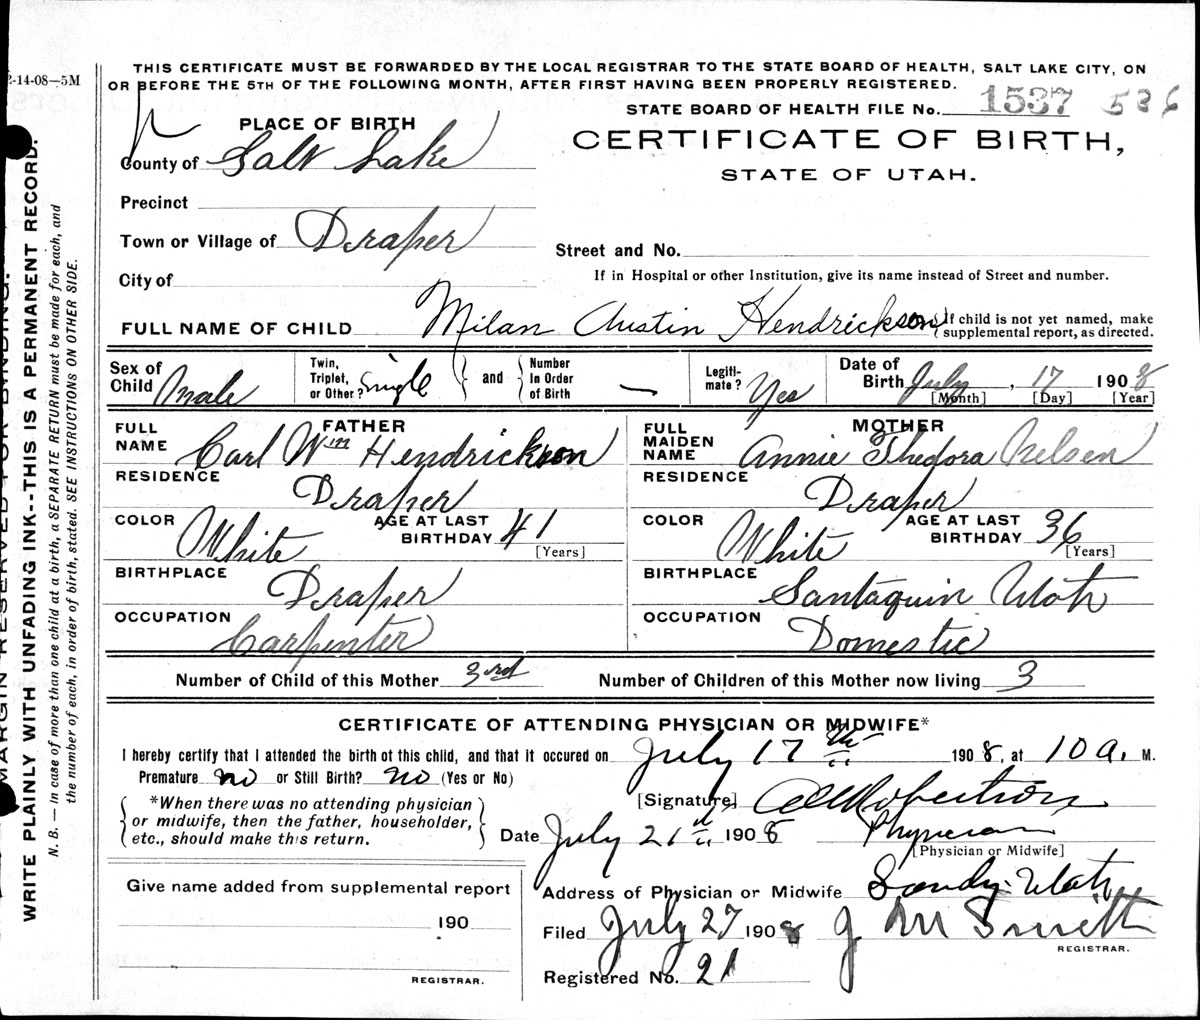 2-14-08—5M
THIS CERTIFICATE MUST BE FORWARDED BY THE LOCAL REGISTRAR TO THE STATE BOARD OF HEALTH, SALT LAKE CITY, ON
OR BEFORE THE 5TH OF THE FOLLOWING MONTH, AFTER FIRST HAVING BEEN PROPERLY REGISTERED.
STATE BOARD OF HEALTH FILE No. 1537 536
PLACE OF BIRTH
CERTIFICATE OF BIRTH,
STATE OF UTAH.
County of Salt Lake
Precinct
Town or Village of Draper
Street and No.
City of
If in Hospital or other Institution, give its name instead of Street and number.
FULL NAME OF CHILD Milan Austin Hendrickson
If child is not yet named, make
supplemental report, as directed.
Sex of
Child Male
Twin,
Triplet,
or Other? Single
and
Number
In Order
of Birth —
Legiti-
mate? Yes
Date of
Birth July, 17 1908
[Month] [Day] [Year]
FATHER
FULL
NAME Carl Wm Hendrickson
RESIDENCE Draper
COLOR White
AGE AT LAST
BIRTHDAY 41
[Years]
BIRTHPLACE Draper
OCCUPATION Carpenter
MOTHER
FULL
MAIDEN
NAME Annie Thedora Nelsen
RESIDENCE Draper
COLOR White
AGE AT LAST
BIRTHDAY 36
[Years]
BIRTHPLACE Santaquin Utah
OCCUPATION Domestic
Number of Child of this Mother 3rd Number of Children of this Mother now living 3
CERTIFICATE OF ATTENDING PHYSICIAN OR MIDWIFE*
I hereby certify that I attended the birth of this child, and that it occured on July 17th 1908, at 10 a. M.
Premature no or Still Birth? no (Yes or No)
*When there was no attending physician
or midwife, then the father, householder,
etc., should make this return.
[Signature] Robertson
Date July 21 1908 Physician
[Physician or Midwife]
Give name added from supplemental report
190
REGISTRAR.
Address of Physician or Midwife Sandy Utah
Filed July 27 1908 J M Smith
REGISTRAR.
Registered No. 21
MARGIN RESERVED FOR BINDING.
WRITE PLAINLY WITH UNFADING INK--THIS IS A PERMANENT RECORD.
N. B. — In case of more than one child at a birth, a SEPARATE RETURN must be made for each, and
the number of each, in order of birth, stated. SEE INSTRUCTIONS ON OTHER SIDE.